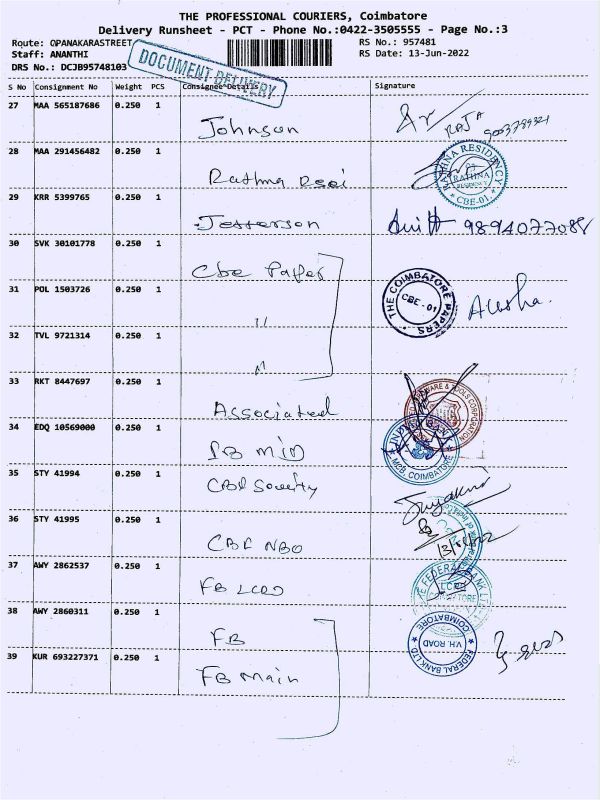 THE PROFESSIONAL COURIERS, Coimbatore
Delivery Runsheet - PCT - Phone No.:0422-3505555 - Page No.:3
Route: OPANAKARASTREET
RS No.: 957481
Staff: ANANTHI
RS Date: 13-Jun-2022
DRS No.: DCJB95748103
DOCUMENT DELIVERY
S No Consignment No Weight PCS Consignee Details Signature
27 MAA 565187686 0.250 1
Johnson
RAJA
28 MAA 291456482 0.250 1
Rathna
RATHNA RESIDENCY
RATHNA
RESIDENCY
CBE-01
29 KRR 5399765 0.250 1
Jefferson
9894077088
30 SVK 30101778 0.250 1
Cbe Paper
31 POL 1503726 0.250 1
"
THE COIMBATORE PAPERS
CBE - 01
32 TVL 9721314 0.250 1
"
33 RKT 8447697 0.250 1
Associated
TOOLS CORPORATION
34 EDQ 10569000 0.250 1
COIMBATORE
35 STY 41994 0.250 1
36 STY 41995 0.250 1
NBO
37 AWY 2862537 0.250 1
FB
FEDERAL BANK
38 AWY 2860311 0.250 1
FB
FEDERAL BANK LTD
V.H. ROAD
COIMBATORE
39 KUR 693227371 0.250 1
FB Main